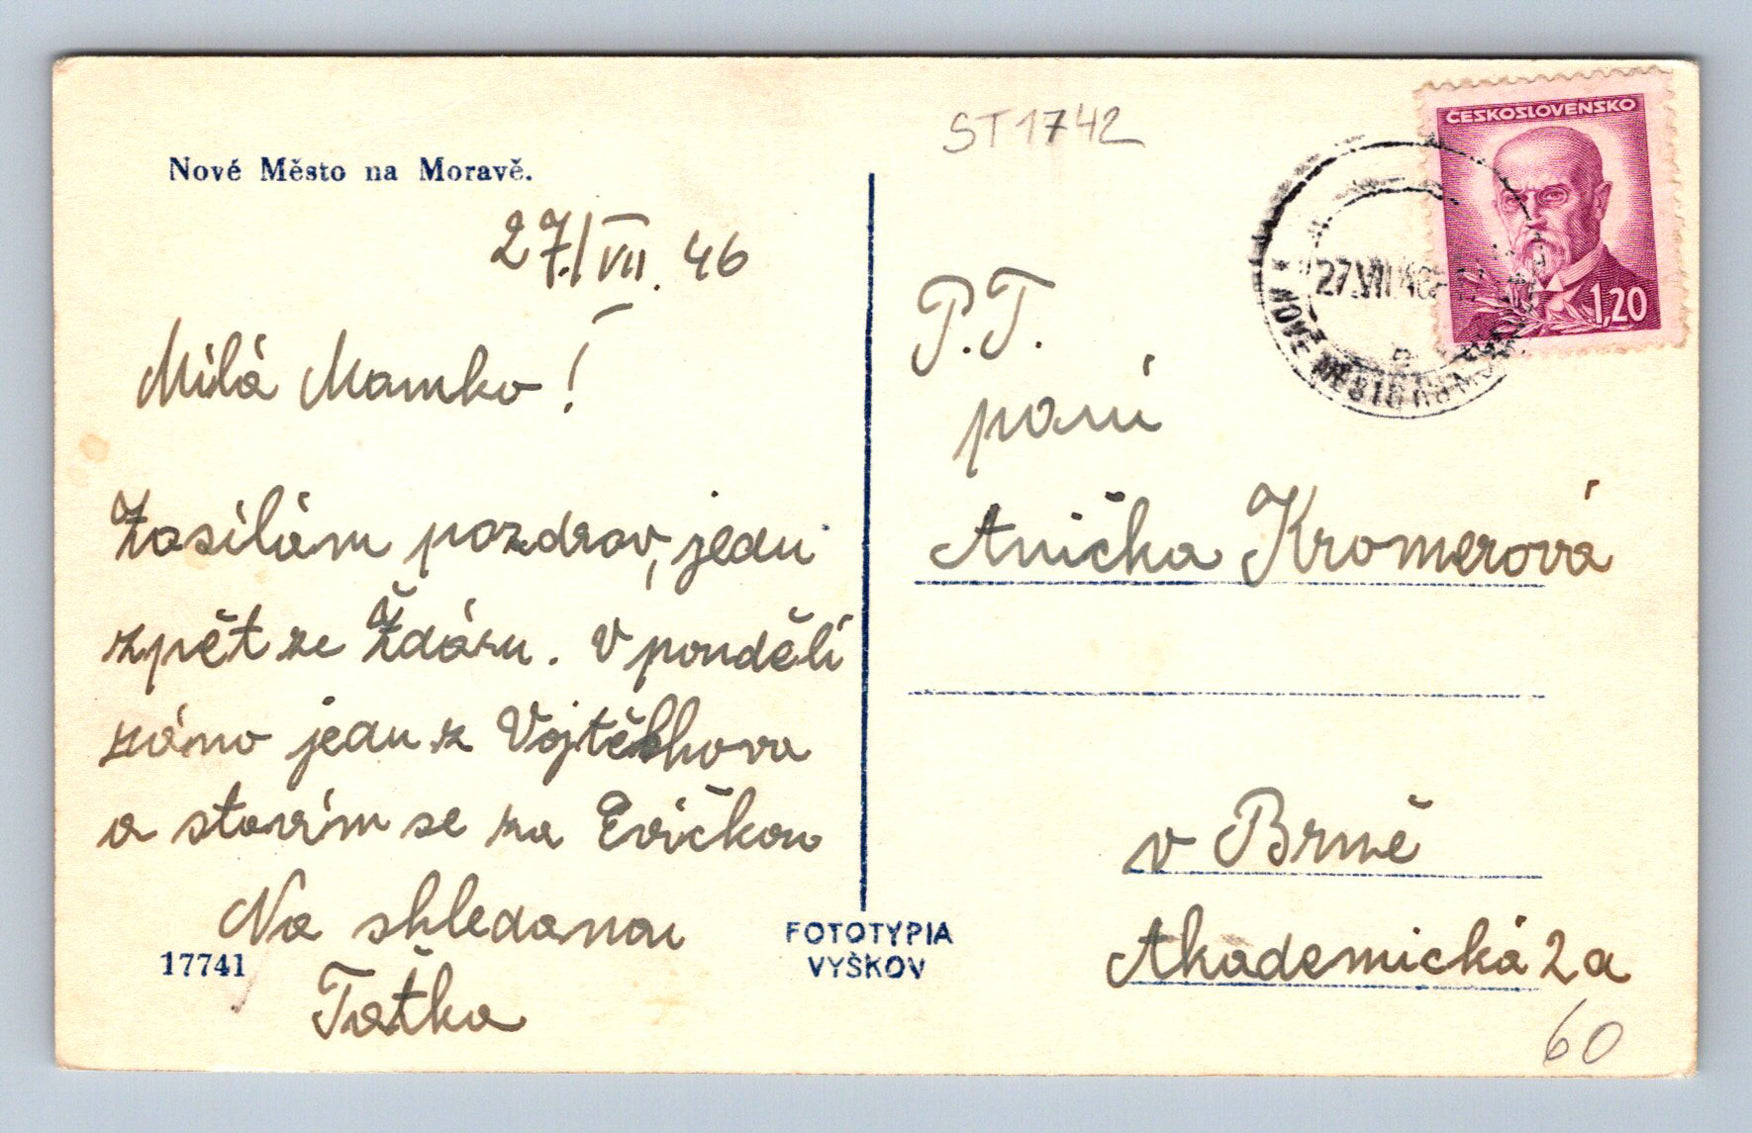 Nové Město na Moravě.
27./VII. 46
Milá Mamko!
Zasílám pozdrav, jedu
zpět ze Žďáru. V pondělí
ráno jedu z Vojtěchova
a stavím se za Evičkou
Na shledanou
Taťka
17741
FOTOTYPIA
VYŠKOV
ST1742
ČESKOSLOVENSKO
1,20
27.VII.46
NOVÉ MĚSTO NA MOR
P.T.
paní
Anička Kromerová
v Brně
Akademická 2a
60